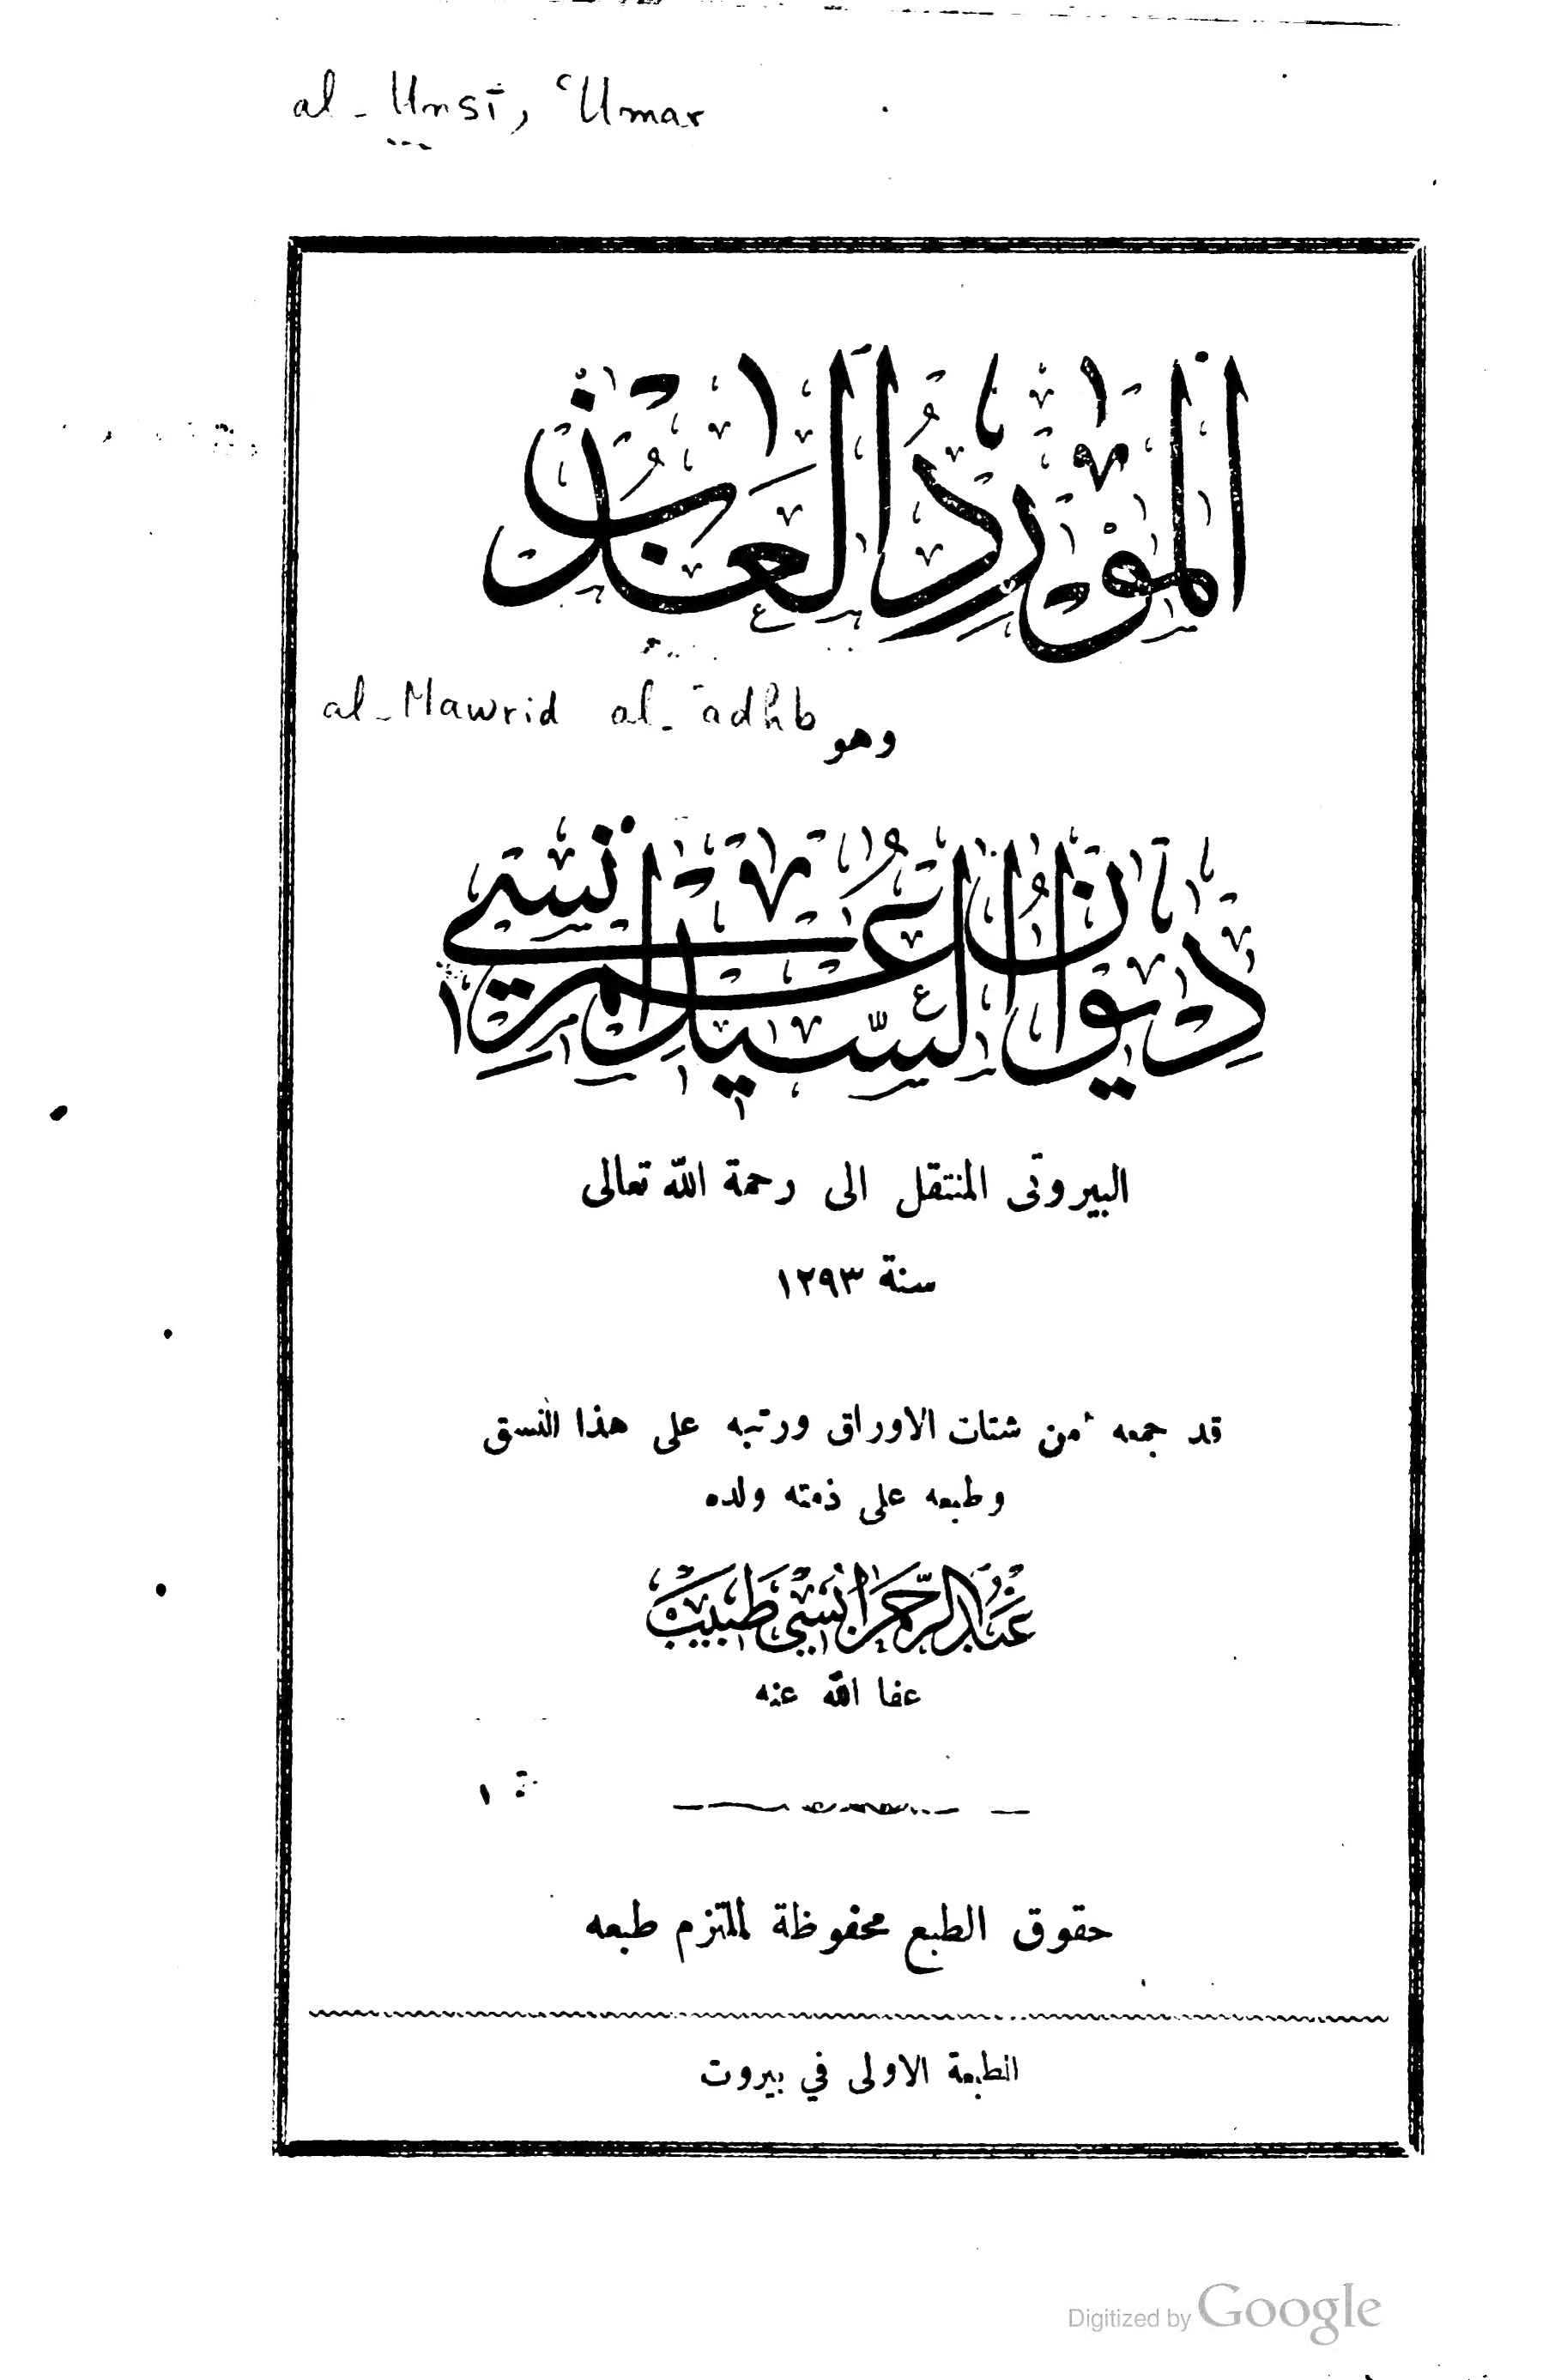 al-Unsī, ʿUmar
المورد العذب
al-Mawrid al-ʿadhb
وهو
ديوان السيد عمر انسي
البيروتى المنتقل الى رحمة الله تعالى
سنة ١٢٩٣
قد جمعه من شتات الاوراق ورتبه على هذا النسق
وطبعه على ذمته ولده
عبد الرحمن انسي طبيب
عفا الله عنه
حقوق الطبع محفوظة لملتزم طبعه
الطبعة الاولى في بيروت
Digitized by Google